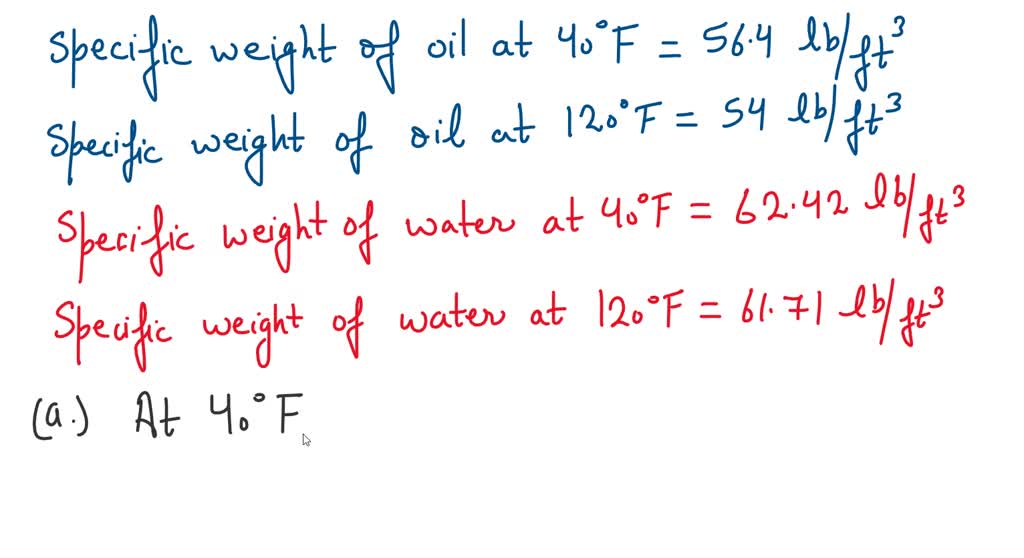 Specific weight of oil at 40°F = 56.4 lb/ft³
Specific weight of oil at 120°F = 54 lb/ft³
Specific weight of water at 40°F = 62.42 lb/ft³
Specific weight of water at 120°F = 61.71 lb/ft³
(a.) At 40°F